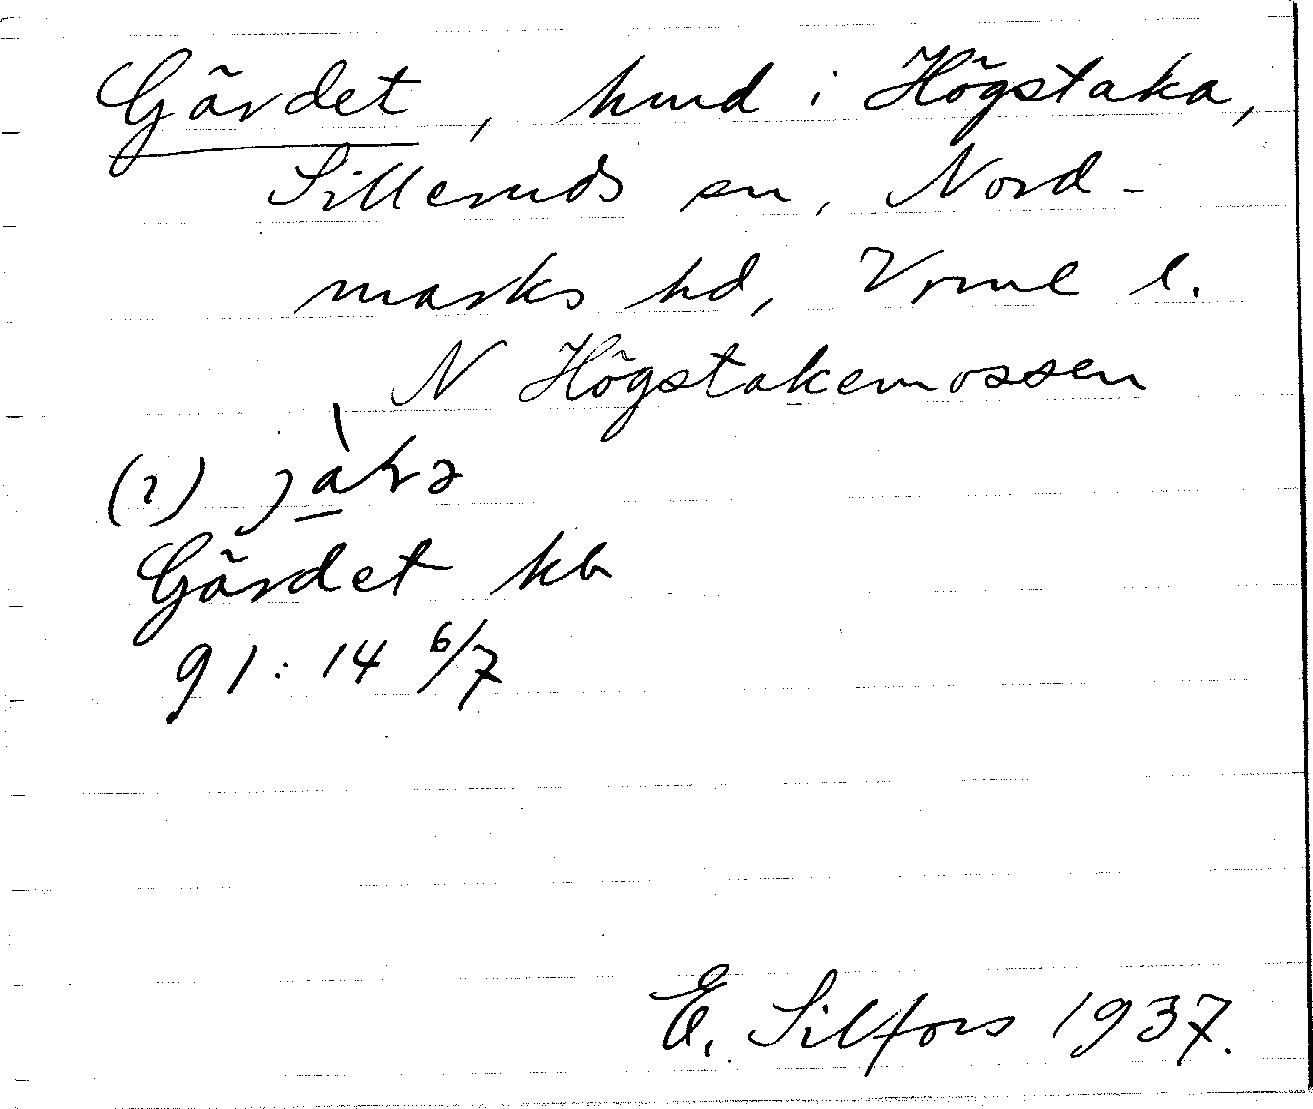 Gärdet, hmd i Högstaka,
Silleruds sn, Nord-
marks hd, Vrml l.
N Högstakemossen
(i)
Gärdet kb
91:14 6/7
E. Silfors 1937.